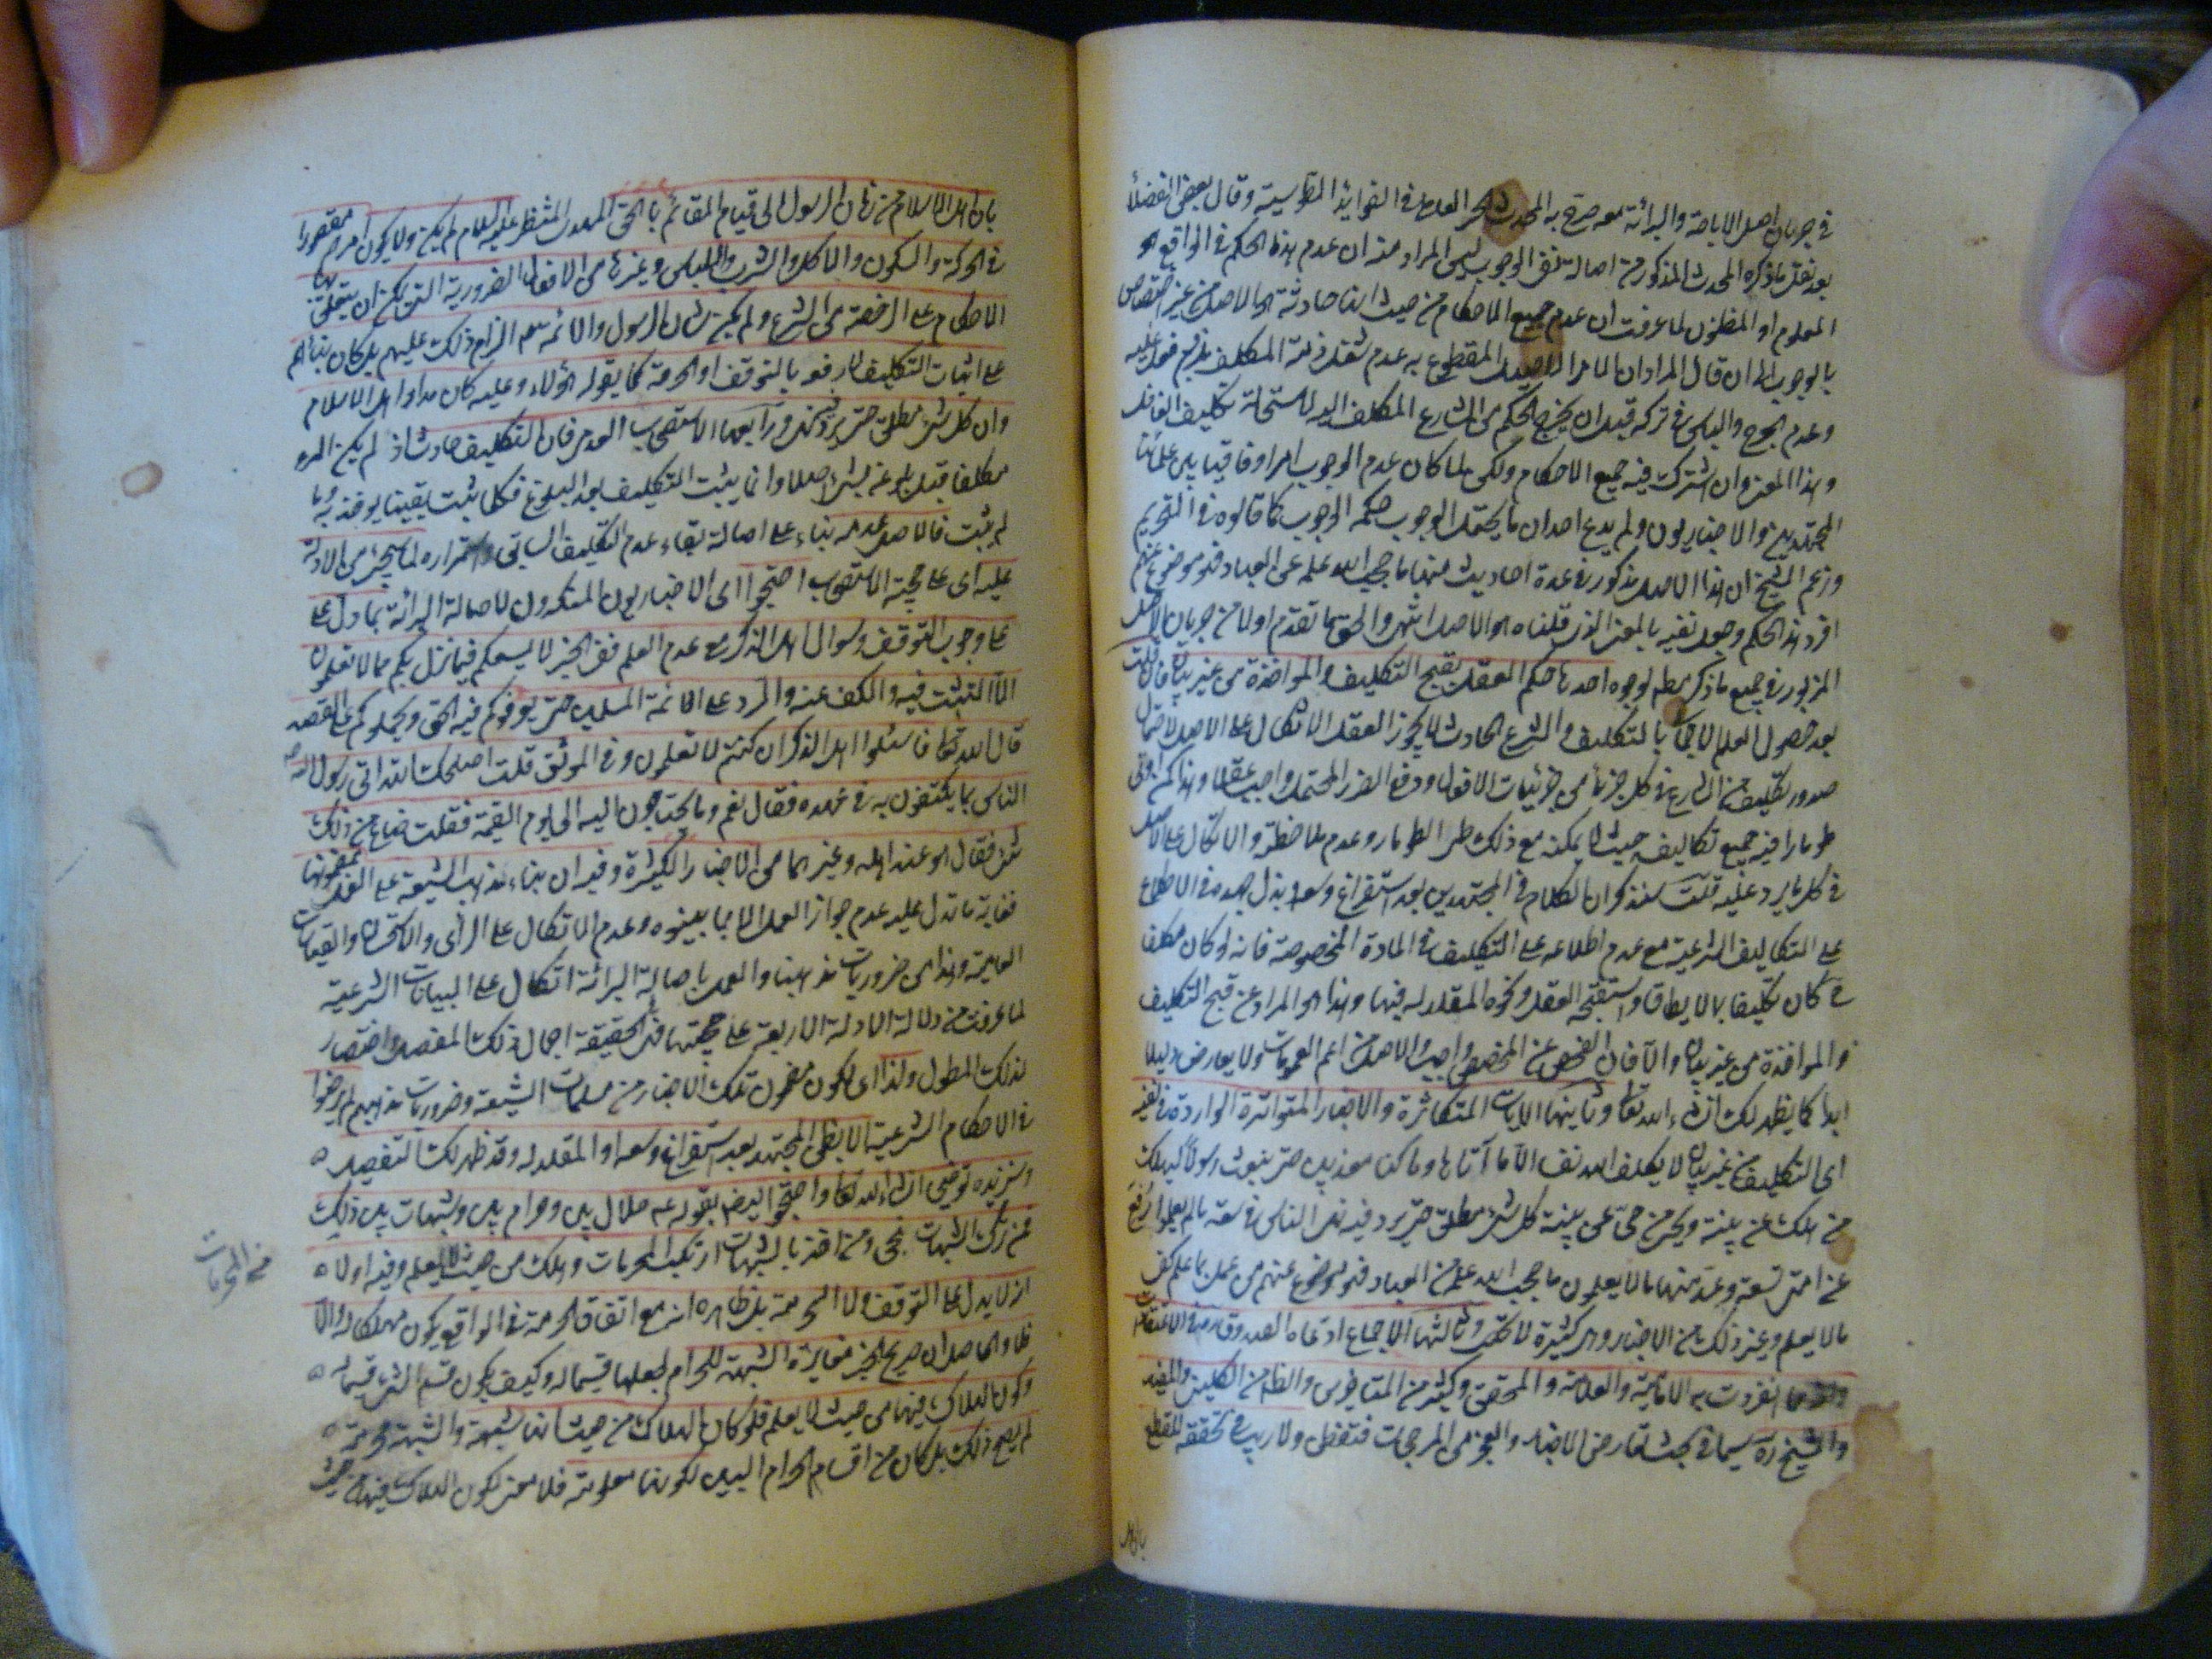 في جريان اصل الاباحة والبرائة معه صرح به المحدث الحر العاملي في الفوايد الطوسية وقال بعض الفضلاء
بعد نقل ما ذكره المحدث المذكور من اصالة نفي الوجوب ليس المراد منه ان عدم هذا الحكم في الواقع هو
المعلوم او المظنون لما عرفت ان عدم جميع الاحكام من حيث انها حادثة الاصل من غير اختصاص
بالوجوب الى ان قال المراد ان الاصل المقطوع به عدم شغل ذمة المكلف بلزوم فعل عليه
وعدم الحرج والباس في تركه قبل ان يخرج الحكم من الشارع المكلف اليه لاستحالة تكليف الغافل
وهذا المعنى وان اشترك فيه جميع الاحكام ولكن لما كان عدم الوجوب امرا وفاقيا بين علمائنا
المجتهدين والاخباريون ولم يدع احد ان ما يحتمل الوجوب حكمه الوجوب كما قالوه في التحريم
وزعم الشيخ ان هذا الاصل مذكور في عدة احاديث منها ما حجب الله علمه عن العباد فهو موضوع عنهم
افرد هذا الحكم وجعل نفيه بالمعنى الذي قلناه هو الاصل انتهى والحق ما تقدم اولا من جريان الاصل
المزبور في جميع ما ذكر مطلقا لوجوه احدها حكم العقل بقبح التكليف والمواخذة من غير بيان فان قلت
بعد حصول العلم الاجمالي بالتكليف والشرع الحادث لا يجوز العقل الاتكال على الاصل لاحتمال
صدور تكليف من الشارع في كل جزئي من جزئيات الافعال ودفع الضرر المحتمل واجب عقلا وهذا كمن اوتي
طومارا فيه جميع تكاليفه حيث لا يمكنه مع ذلك طي الطومار وعدم ملاحظته والاتكال على الاصل
في كل ما يرد عليه قلت سنذكر ان الكلام في المجتهدين بعد استفراغ وسعه وبذل جهده في الاطلاع
على التكاليف الشرعية مع عدم اطلاعه على التكليف في المادة المخصوصة فانه لو كان مكلفا
ح كان تكليفا بما لا يطاق واستقبحه العقل ونحوه المقلد له فيها وهذا هو المراد من قبح التكليف
والمواخذة من غير بيان والا فان الفحص عن المخصص واجب والاصل من اعم العمومات ولا يعارض دليلا
ابدا كما يظهر لك انشاء الله تعالى وثانيها الايات المتكاثرة والاخبار المتواترة الواردة في نفي
اى التكليف من غير بيان لا يكلف الله نفسا الا ما آتاها وما كنا معذبين حتى نبعث رسولا ليهلك
من هلك عن بينة ويحيى من حي عن بينة كل شيء مطلق حتى يرد فيه نهي الناس في سعة ما لم يعلموا رفع
عن امتي تسعة وعد منها ما لا يعلمون ما حجب الله علمه عن العباد فهو موضوع عنهم من عمل بما علم كفي
ما لا يعلم وغير ذلك من الاخبار وهي كثيرة لا تخفى وثالثها الاجماع ادعاه الصدوق في الاعتقادات
انفردت به الامامية والعلامة والمحقق وكثير من المتاخرين والظاهر من الكليني والمفيد
والشيخ ره سيما في بحث تعارض الاخبار والعجز من المرجحات فتفطن ولا ريب في تحققه للقطع
بان اهل
بان اهل الاسلام من زمان الرسول الى قيام القائم بالحق المهدي المنتظر عليه السلام لم يكن ولا يكون امرهم مقصورا
في الحركة والسكون والاكل والشرب واللباس وغيرها من الافعال الضرورية التي يمكن ان يتعلق بها
الاحكام على الرخصة من الشرع ولم يكن شان الرسول والائمة عم الزام ذلك عليهم بل كان بنائهم
على اثبات التكليف لا رفعه بالتوقف او الحرمة كما يقوله هؤلاء وعليه كان مدار اهل الاسلام
وان كل شيء مطلق حتى يرد فيه نهي ورابعها الاستصحاب العدمي فان التكليف حادث اذ لم يكن المرء
مكلفا قبل بلوغه بشيء اصلا وانما يثبت التكليف بعد البلوغ فكلما ثبت يقينا يوخذ به وما
لم يثبت فالاصل عدمه بناء على اصالة بقاء عدم التكليف السابق واستمراره لما سيجيء من الادلة
عليه اى على حجية الاستصحاب احتجوا اى الاخباريون المنكرون لاصالة البرائة بما دل على
على وجوب التوقف وسوال اهل الذكر مع عدم العلم ففي الخبر لا يسعكم فيما نزل بكم مما لا تعلمون
الا التثبت فيه والكف عنه والرد على الائمة المسلمين حتى يعرفوكم فيه الحق ويحملوكم على القصد
قال الله تعالى فاسئلوا اهل الذكر ان كنتم لا تعلمون وفي الموثق قلت اصلحك الله اتى رسول الله ص
الناس بما يكتفون به في عهده فقال نعم وما يحتاجون اليه الى يوم القيمة فقلت ضاع من ذلك
شيء فقال هو عند اهله وغيرهما من الاخبار الكثيرة وفيه ان بناء مذهب الشيعة على العمل بمضمونها
فغاية ما تدل عليه عدم جواز العمل الا بما بينوه وعدم الاتكال على الراى والاستحسان والقياسات
العامية وهذا من ضروريات مذهبنا والعمل باصالة البرائة اتكال على البيانات الشرعية
لما عرفت من دلالة الادلة الاربعة على حجيتها ففي الحقيقة اجمال لذلك المفصل واختصار
لذلك المطول ولذا اى لكون مضمون تلك الاخبار من مسلمات الشيعة وضروريات مذهبهم لم يرضوا
في الاحكام الشرعية الا بظن المجتهد بعد استفراغ وسعه او المقلد له وقد ظهر لك التفصيل
وسنزيده توضيحا انشاء الله تعالى واحتجوا ايضا بقوله عم حلال بين وحرام بين وشبهات بين ذلك
فمن ترك الشبهات نجى من المحرمات ومن اخذ بالشبهات ارتكب المحرمات وهلك من حيث لا يعلم وفيه اولا
انه لا يدل على التوقف ولا الحرمة بل ظاهره انه مع اتفاق الحرمة في الواقع يكون مهلكا والا
فلا والحاصل ان صريح الخبر مغايرة الشبهة للحرام لجعلها قسيما له وكيف يكون قسم الشيء قسيما له
وكون الهلاك فيها من حيث لا يعلم فلو كان الهلاك من حيث انها شبهة والشبهة محرمة
لم يصح ذلك بل كان من اقسام الحرام البين لكونها معلومة فلا معنى لكون الهلاك فيها من حيث